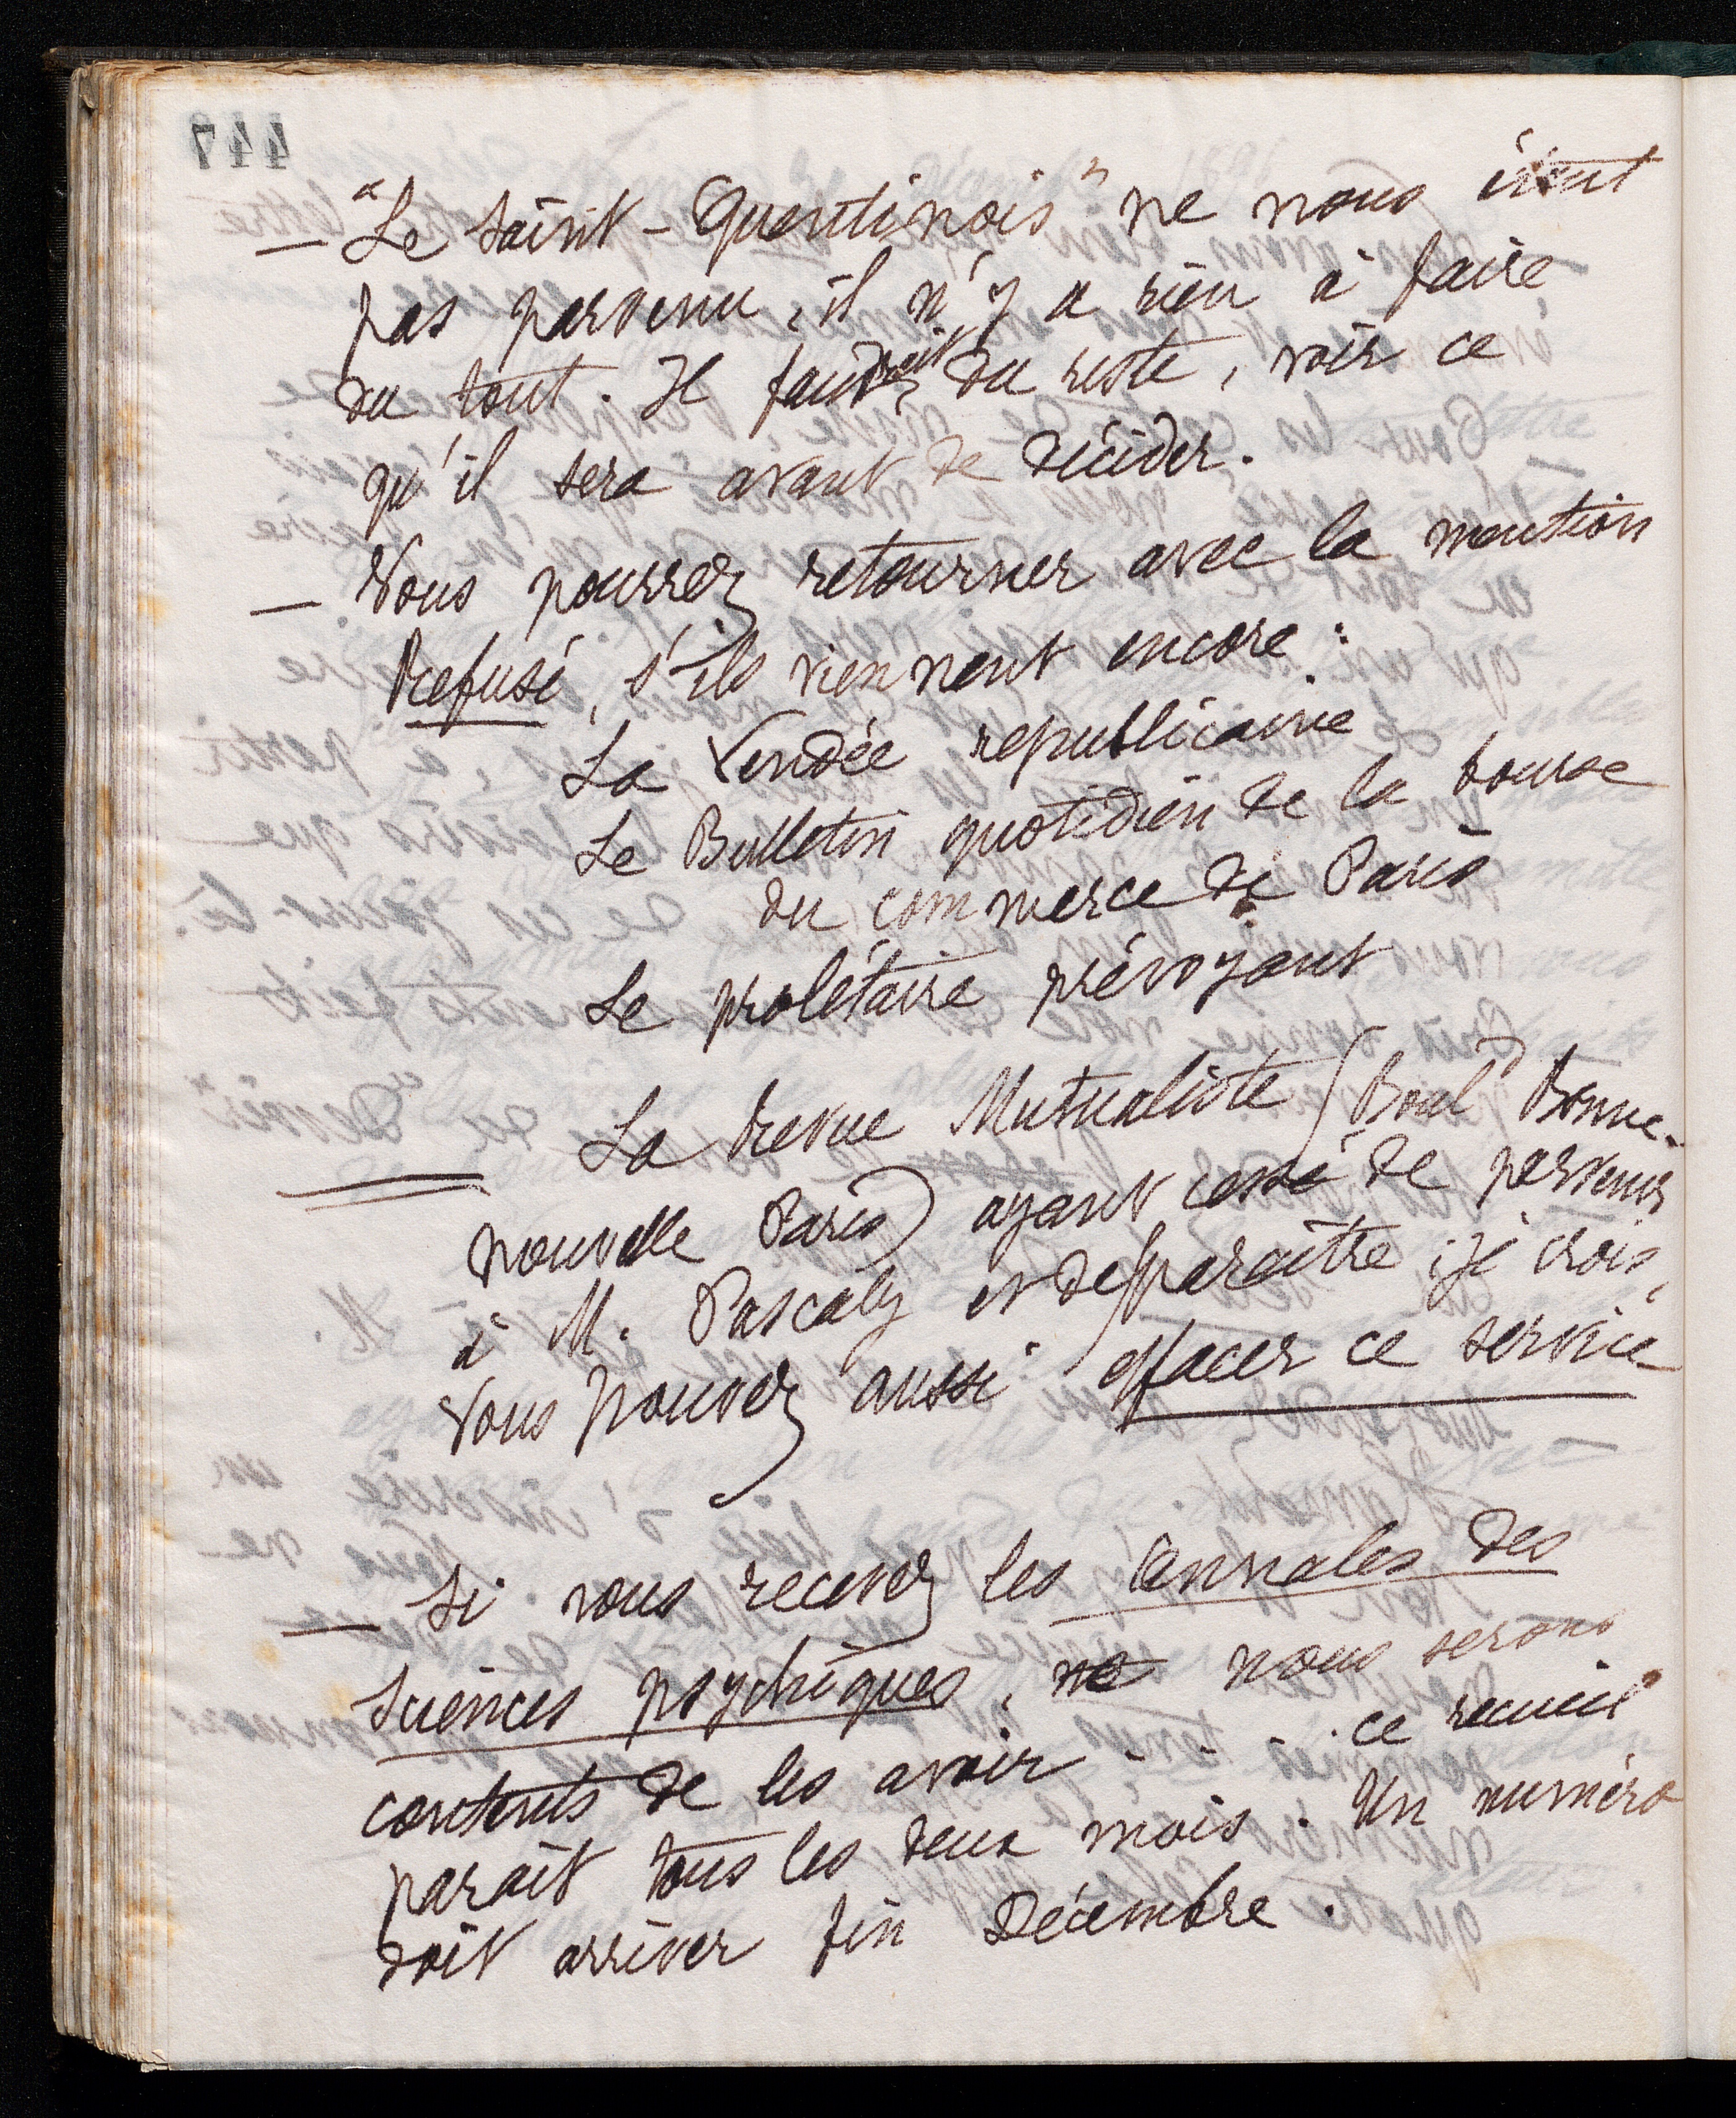 447
— "Le Saint-Quentinois" ne nous étant
pas parvenu, il n'y a rien à faire
du tout. Il faudrait, du reste, voir ce
qu'il sera avant de décider.
— Vous pourrez retourner avec la mention
Refusé, s'ils viennent encore :
La Vendée republicaine
Le Bulletin quotidien de la bourse
du commerce de Paris
Le prolétaire prévoyant
La Revue Mutualiste (Boul^d Bonne-
nouvelle Paris) ayant cessé de parvenir
à M. Pascaly et de paraître, je crois,
vous pouvez aussi effacer ce service
— Si vous recevez les Annales des
Sciences psychiques, ne nous serons
contents de les avoir.... ce recueil
parait tous les deux mois. Un numéro
doit arriver fin Décembre.